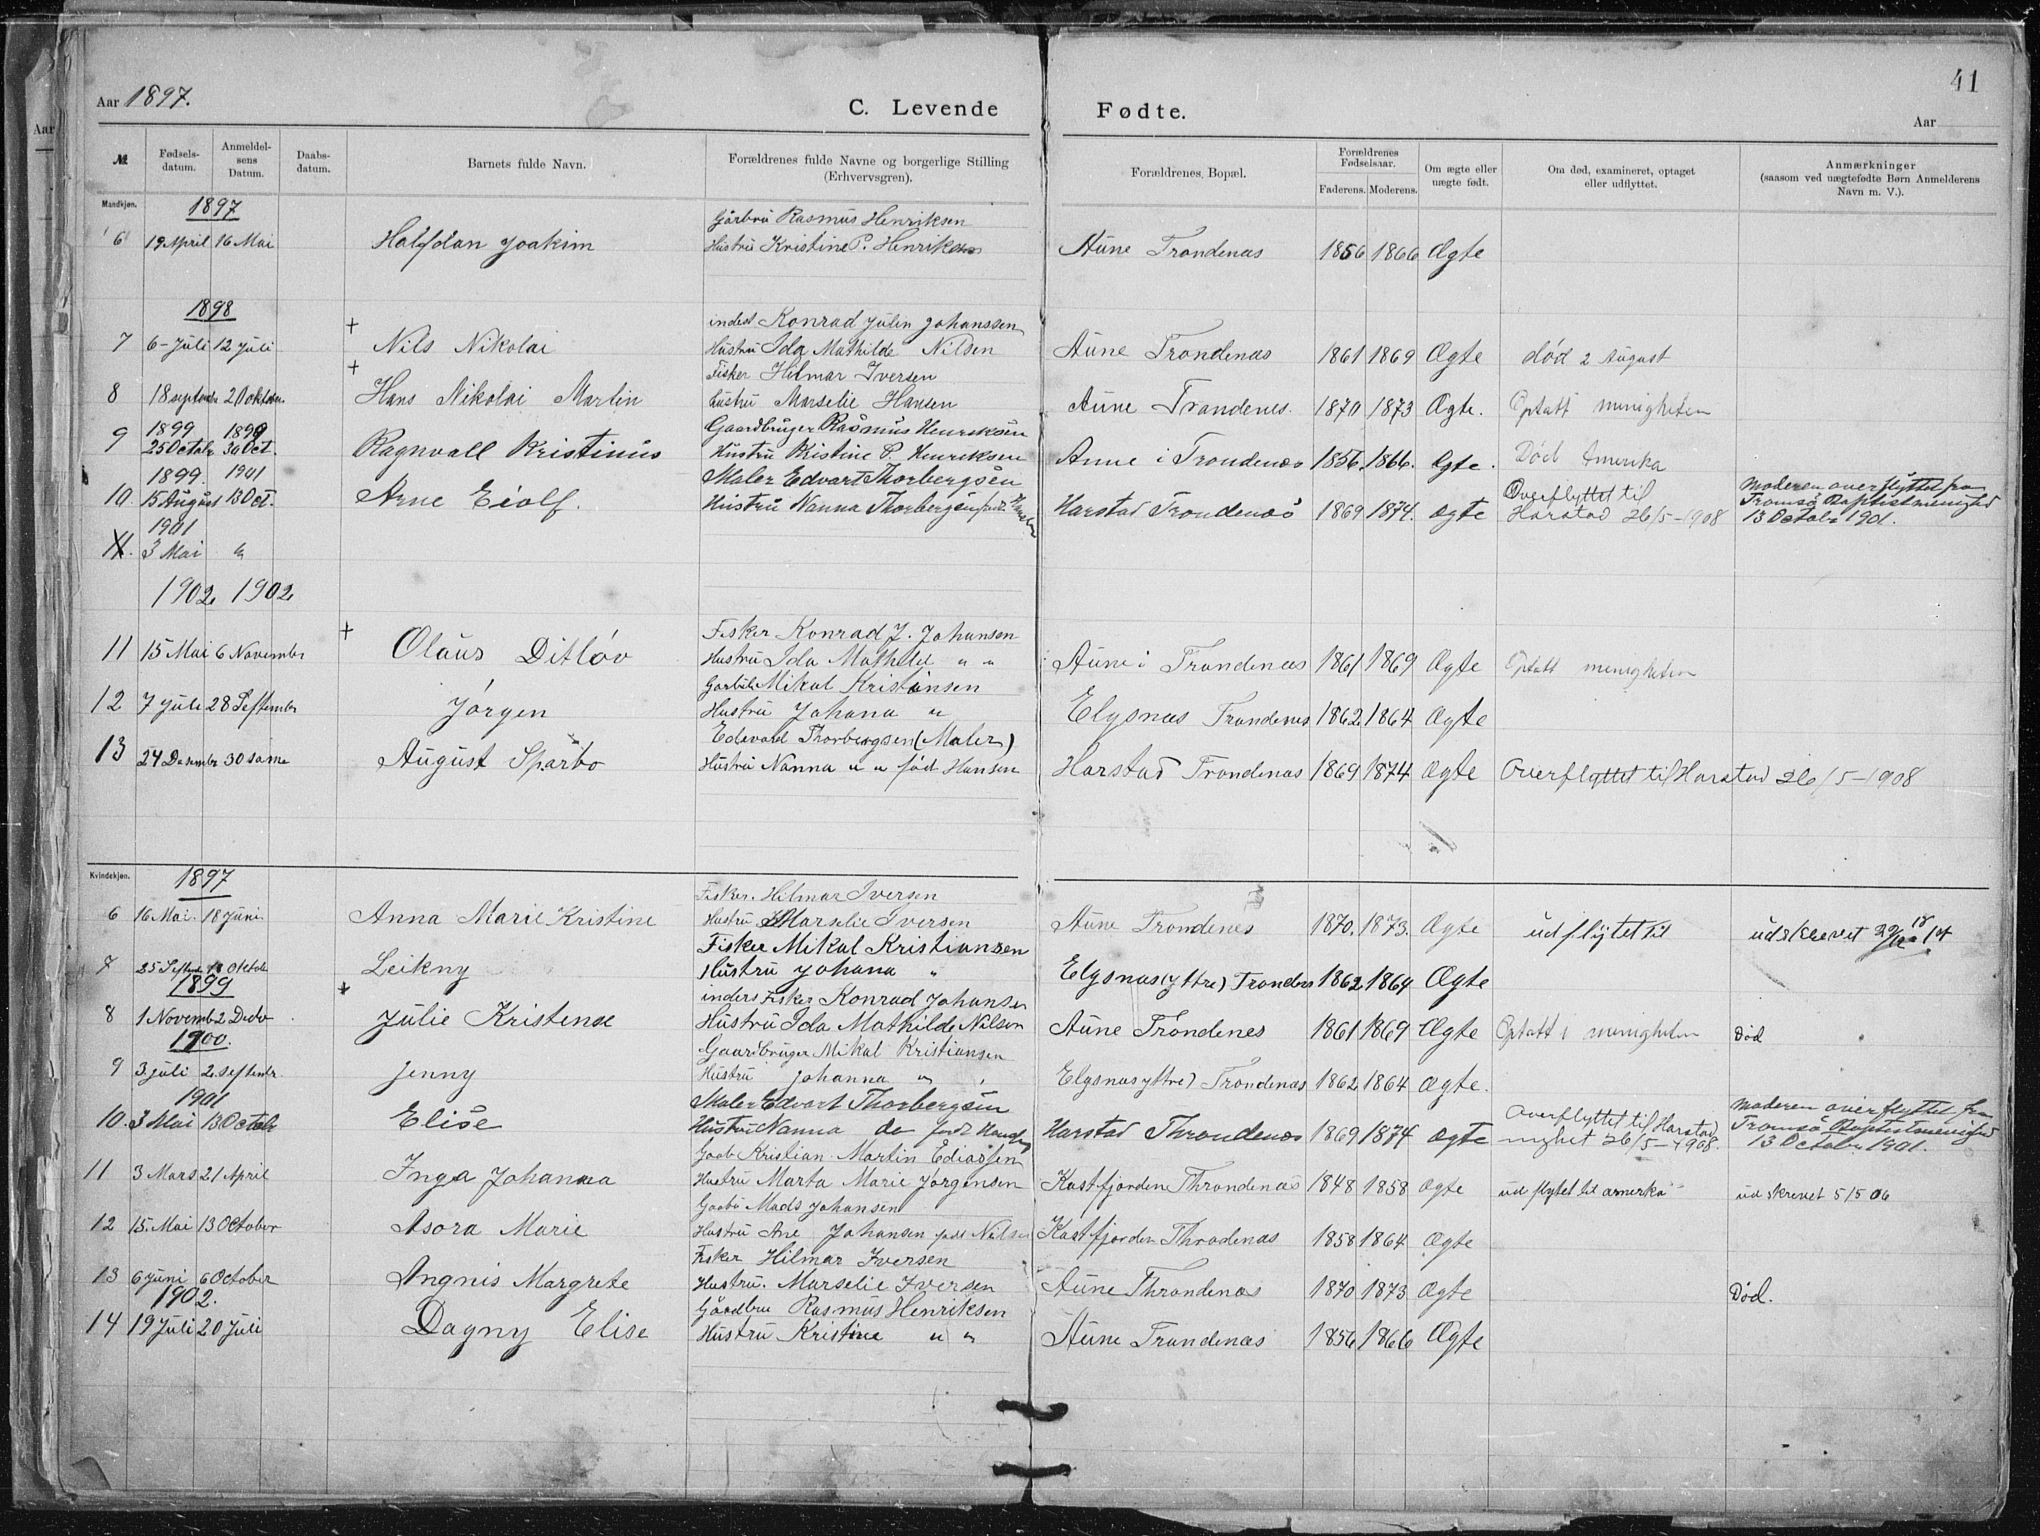 41
Aar 1897.
C. Levende Fødte.
Aar
№ Fødsels-datum. Anmeldel-sens Datum. Daabs-datum. Barnets fulde Navn. Forældrenes fulde Navne og borgerlige Stilling (Erhvervsgren). Forældrenes Bopæl. Forældrenes Fødselsaar. Faderens. Moderens. Om ægte eller uægte født. Om død, examineret, optaget eller udflyttet. Anmærkninger (saasom ved uægtefødte Børn Anmelderens Navn m. V.).
Mandkjøn.
1897
Gårbru Rasmus Henriksen
6 19 April 16 Mai Halfdan Joakim Hustru Kristine P. Henriksen Aune Trondenæs 1856 1866 Ægte
1898
inderst Konrad Julin Johanssen
7 6-Juli 12 Juli + Nils Nikolai Hustru Ida Mathilde Nilsen Aune Trondenæs 1861 1869 Ægte død 2 August
Fisker Hilmar Iversen
8 18 septembr 20 oktober + Hans Nikolai Martin hustru Marselie Hansen Aune Trondenes. 1870 1873 Ægte. Optatt menigheten
1899 1899 Gaardbruger Rasmus Henriksen
9 25 Octobr 30 Oct. Ragnvall Kristinus Hustru Kristine P. Henriksen Aune i Trondenæs 1856. 1866. Ægte. Død Amerika
1899. 1901 Maler Edvart Thorbergsen
10. 15 August 13 Oct. Arne Eiolf. Hustru Nanna Thorbergsen født Hansen Harstad Trondenæs 1869 1874. ægte Overflyttet til Harstad 26/5-1908 Moderen overflyttet fra Tromsø Baptistmenighed 13 Octobr 1901.
1901
11. 3 Mai "
1902 1902
Fisker Konrad J. Johansen
11 15 Mai 6 November + Olaus Ditløv Hustru Ida Mathild " " Aune i Trondenæs 1861 1869 Ægte Optatt menigheten
Mikal Kristiansen
12 7 Juli 28 September Jørgen Hustru Johana " Elgsnæs Trondenæs 1862 1864 Ægte
Edevard Thorbergsen (Maler)
13 24 Desembr 30 same August Sparbo Hustru Nanna " " født Hansen Harstad Trondenæs 1869 1874 Ægte Overflyttet til Harstad 26/5-1908
Kvindekjøn.
1897
Fisker. Hilmar Iversen
6 16 Mai. 18 Juni. Anna Marie Kristine Hustru Marselie Iversen Aune Trondenes 1870. 1873. Ægte udflytet til udskrevet
Fisker Mikal Kristiansen
7 25 Septembr 18 Oktobr Leikny Hustru Johana " Elgsnæs (yttre) Trondenes 1862 1864 Ægte
1899
inders Fisker Konrad Johansen
8 1 Novemb 2 Decbr + Julie Kristense Hustru Ida Mathilde Nilsen Aune Trondenes 1861 1869 Ægte Optatt i menigheten Død
1900.
Gaardbruger Mikal Kristiansen
9 3 juli 2. septembr. Jenny Hustru Johanna " Elgsnæs yttre) Trondenæs 1862 1864 Ægte.
1901
Maler Edvart Thorbergsen
10. 3 Mai 13 Octobr Elise Hustru Nanna do født Hansen Harstad Throndenæs 1869 1874 ægte Overflyttet til Harstad mighet 26/5-1908. Moderen overflyttet fra Tromsø Baptistmenighed 13 Octobr 1901.
Kristian Martin Ediassen
11 3 Mars 21 April Inga Johanna Hustru Marta Marie Jørgensen Kastfjorden Throndenæs 1848 1858 ægte ud flytet til amerka ud skrevet 5/5 06
Gaabr Mads Johansen
12 15. Mai 13 October Asora Marie Hustru Ane Johansen født Nilsen Kastfjorden Throdenæs 1858 1864 Ægte
Fisker Hilmar Iversen
13 6 juni 6 October Angnis Margrete Hustru. Marselie Iversen Aune Throndenæs 1870 1873 Ægte Død.
1902.
Gaardbru Rasmus Henriksen
14 19 Juli 20 Juli Dagny Elise Hustru Kristine " " Aune Trondenæs 1856 1866 Ægte